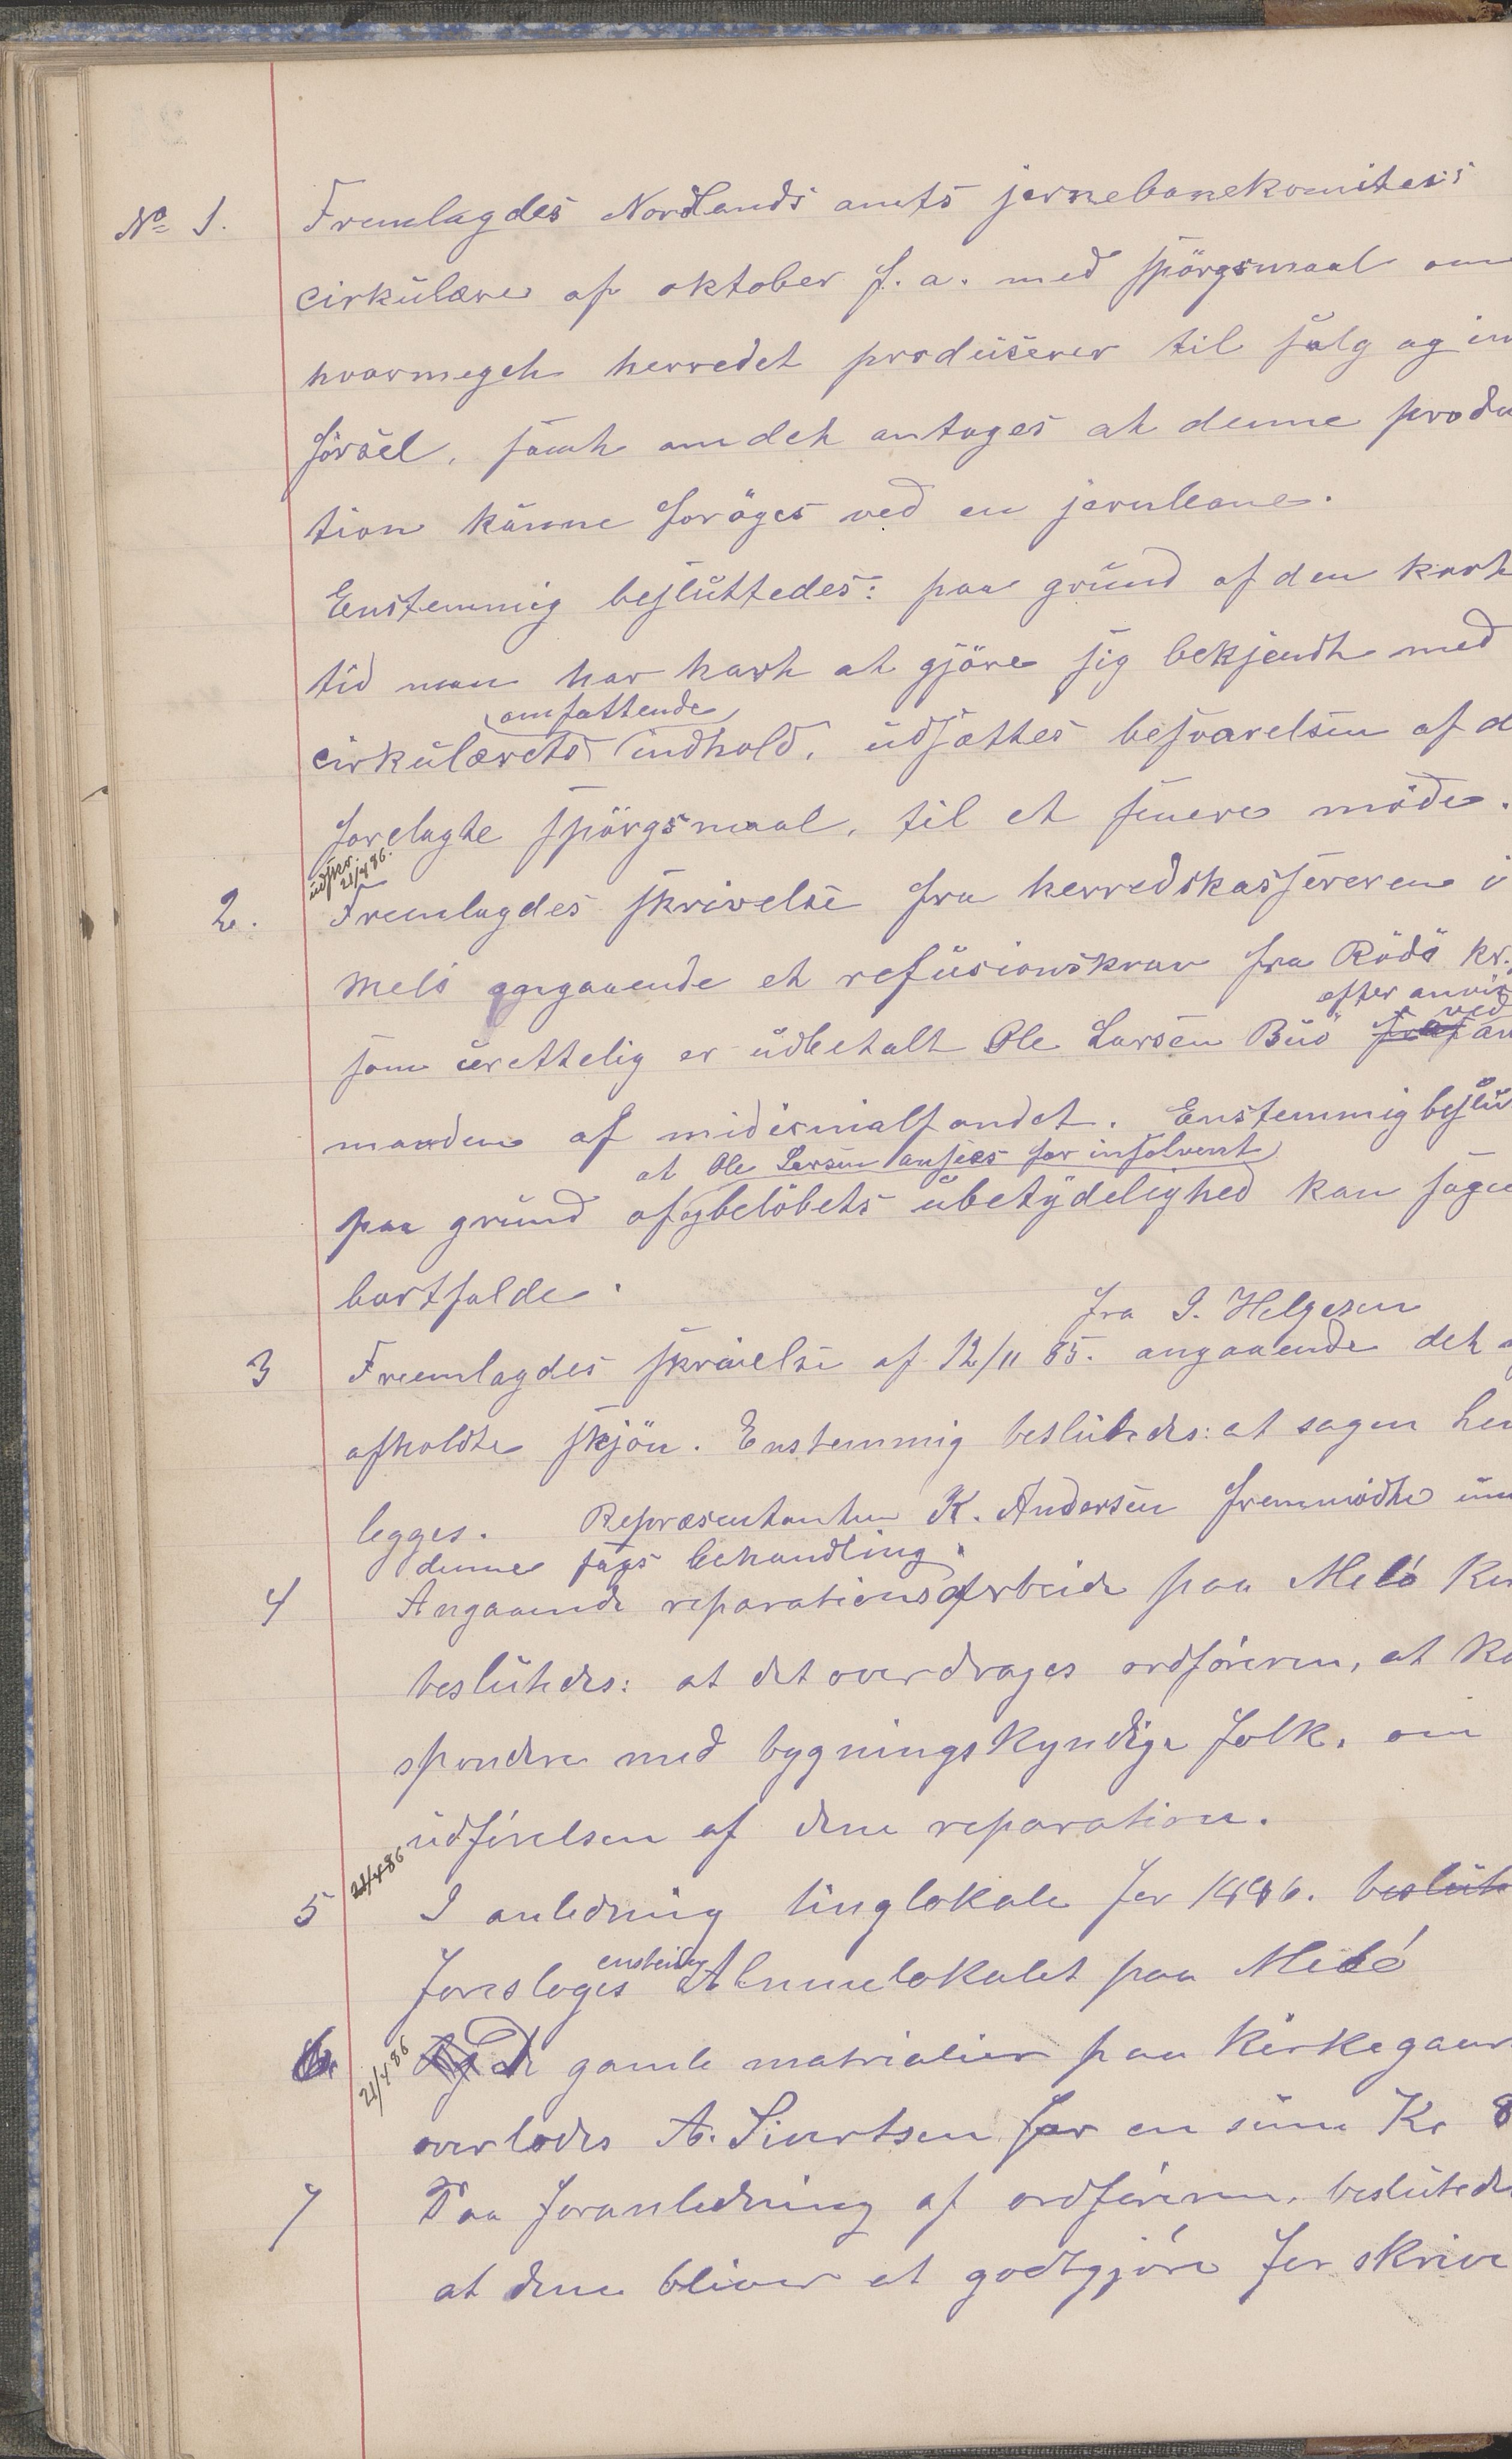 No 1. Fremlagdes Nordlands amts jernebanekomitees
cirkulære af oktober f. a. med spörgsmaal om
hvormeget herredet produserer til salg og in
försel, samt om det antages at denne produ
tion kunne foröges ved en jernbane.
Enstemmig besluttedes: paa grund af den kort
tid man har havt at gjöre sig bekjendt med
omfattende
cirkulærets indhold, udsættes besvarelsen af d
forelagte spörgsmaal, til et senere möde.
udskr. 21/4 86.
2. Fremlagdes skrivelse fra herredskassereren i
Melö angaaende et refusionskrav fra Rödö kr.
efter anvis
ved
som urettelig er udbetalt Ole Larsen Buö
manden af midisinalfondet. Enstemmig beslu
at Ole Larsen ansees for insolvent
paa grund af og belöbets ubetydelighed kan sagen
bortfalde.
fra I. Helgesen
3 Fremlagdes skrivelse af 12/11 85. angaaende det
afholdte skjön. Enstemmig beslutedes: at sagen hen
legges. Repræsentanten K. Andersen fremmödte un
denne sags behandling.
4 Angaaende reparationsarbeide paa Melö Kir
beslutedes: at det overdrages ordföreren, at ko
spondere med bygningskyndige folk, om
udförelsen af denne reparation.
21/4 86
5 I anledning tinglokale for 1886. beslut
enstemig
foresloges Almuelokalet paa Melö
21/4 86
6. De gamle matrialier paa Kirkegaar
overlodes A. Sivertsen for en sum Kr 8
7 Paa foranledning af ordföreren, beslutede
at denne bliver at godtgjöre for skrive